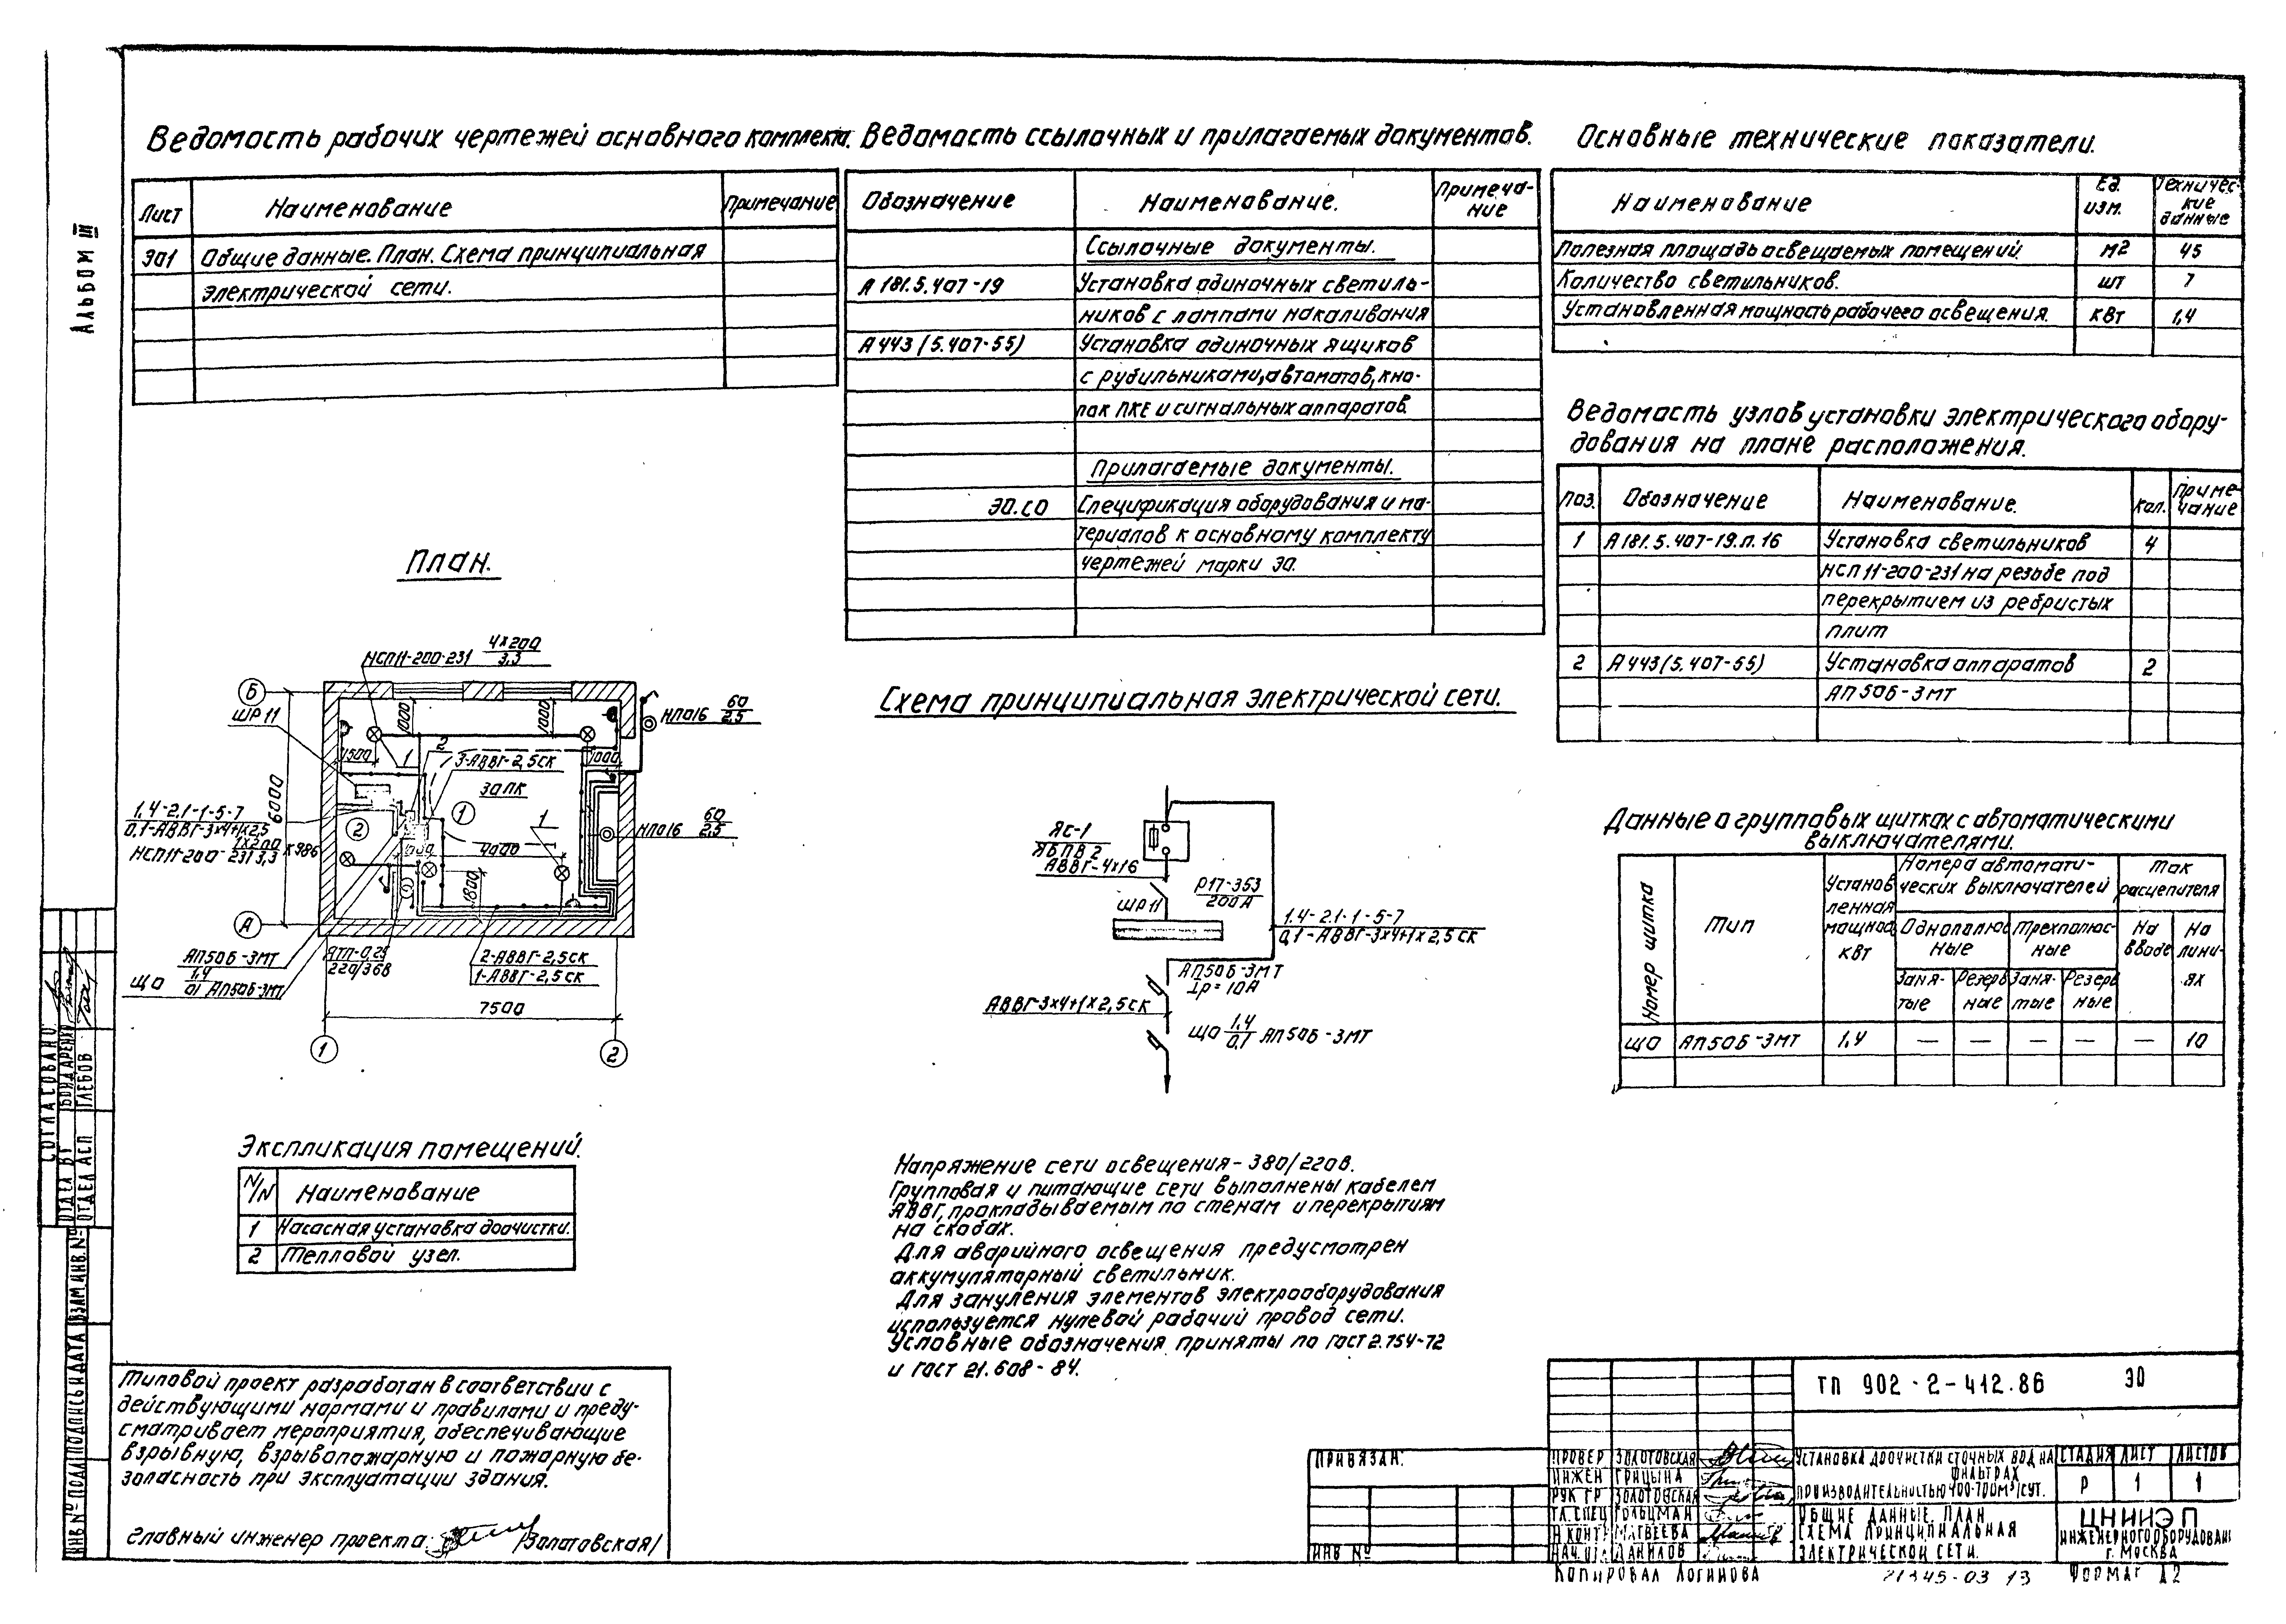 Альбом III
Ведомость рабочих чертежей основного комплекта.
Лист Наименование Примечание
ЭО1 Общие данные. План. Схема принципиальная
электрической сети.
Ведомость ссылочных и прилагаемых документов.
Обозначение Наименование. Примеча-
ние
Ссылочные документы.
А181.5.407-19 Установка одиночных светиль-
ников с лампами накаливания
А443 (5.407-55) Установка одиночных ящиков
с рубильниками, автоматов, кно-
пок ПКЕ и сигнальных аппаратов.
Прилагаемые документы.
ЭО.СО Спецификация оборудования и ма-
териалов к основному комплекту
чертежей марки ЭО.
Основные технические показатели.
Наименование Ед. изм. Техничес-
кие
данные
Полезная площадь освещаемых помещений. м2 45
Количество светильников. шт 7
Установленная мощность рабочего освещения. кВт 1,4
Ведомость узлов установки электрического обору-
дования на плане расположения.
Поз. Обозначение Наименование. Кол. Приме-
чание
1 А181.5.407-19.п.16 Установка светильников 4
НСП11-200-231 на резьбе под
перекрытием из ребристых
плит
2 А443(5.407-55) Установка аппаратов 2
АП50Б-3МТ
План.
НСП11-200-231 4×200
3,3
Б
ШР11
НПО16 60
2,5
1000
1000
1500
1
2
3-АВВГ-2,5СК
1000
ЗАПК
6000
1
2
1
1,4-2,1-1-5-7
0,1-АВВГ-3×4+1×2,5
НСП11-200-231 1×200
3,3
НПО16 60
2,5
1000
4000
1800
А
АП50Б-3МТ
ЯТП-0,25
220/36В
2-АВВГ-2,5СК
1-АВВГ-2,5СК
ЩО 1,4
0,1 АП50Б-3МТ
7500
1
2
Схема принципиальная электрической сети.
ЯС-1
ЯБПВ2
АВВГ-4×16
ШР11
Р17-353
200А
1.4-2.1-1-5-7
0,1-АВВГ-3×4+1×2,5СК
АП50Б-3МТ
Iр=10А
АВВГ-3×4+1×2,5СК
ЩО 1,4
0,1 АП50Б-3МТ
Данные о групповых щитках с автоматическими
выключателями.
Номер щитка
Тип
Установ
ленная
мощнос
кВт
Номера автомати-
ческих выключателей
Ток
расцепителя
Однополюс
ные
Трехполюс-
ные
На
вводе
На
лини-
ях
Заня-
тые
Резерв
ные
Заня-
тые
Резерв
ные
ЩО АП50Б-3МТ 1,4 — — — — — 10
Экспликация помещений.
N/N Наименование
1 Насосная установка доочистки.
2 Тепловой узел.
Напряжение сети освещения-380/220в.
Групповая и питающие сети выполнены кабелем
АВВГ, прокладываемым по стенам и перекрытиям
на скобах.
Для аварийного освещения предусмотрен
аккумуляторный светильник.
Для зануления элементов электрооборудования
используется нулевой рабочий провод сети.
Условные обозначения приняты по ГОСТ 2.754-72
и ГОСТ 21.608-84.
Типовой проект разработан в соответствии с
действующими нормами и правилами и преду-
сматривает мероприятия, обеспечивающие
взрывную, взрывопожарную и пожарную бе-
зопасность при эксплуатации здания.
Главный инженер проекта: /Золотовская/
СОГЛАСОВАНО:
ОТДЕЛ ВТ БОНДАРЕНКО
ОТДЕЛ АСП ГЛЕБОВ
ИНВ.№ ПОДЛ. ПОДПИСЬ И ДАТА ВЗАМ.ИНВ.№
ПРИВЯЗАН:
ИНВ №
ТП 902-2-412.86 ЭО
ПРОВЕР ЗОЛОТОВСКАЯ
ИНЖЕН ГРИЦЫНА
РУК ГР ЗОЛОТОВСКАЯ
ГЛ.СПЕЦ ГОЛЬЦМАН
Н.КОНТР МАТВЕЕВА
НАЧ.ОТД ДАНИЛОВ
УСТАНОВКА ДООЧИСТКИ СТОЧНЫХ ВОД НА
ФИЛЬТРАХ
ПРОИЗВОДИТЕЛЬНОСТЬЮ 400-700М³/СУТ.
СТАДИЯ ЛИСТ ЛИСТОВ
Р 1 1
ОБЩИЕ ДАННЫЕ. ПЛАН
СХЕМА ПРИНЦИПИАЛЬНАЯ
ЭЛЕКТРИЧЕСКОЙ СЕТИ.
ЦНИИЭП
ИНЖЕНЕРНОГО ОБОРУДОВАНИ
г. МОСКВА
КОПИРОВАЛ ЛОГИНОВА 21345-03 13 ФОРМАТ А2